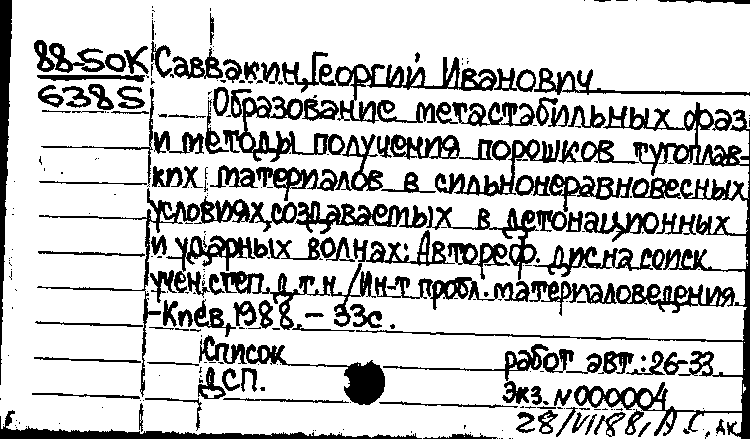 88-50К Саввакин, Георгий Иванович.
6385 Образование метастабильных фаз
и методы получения порошков тугоплав-
ких материалов в сильнонеравновесных
условиях, создаваемых в детонационных
и ударных волнах: Автореф. дис. на соиск.
учен. степ. д.т.н. / Ин-т пробл. материаловедения.
-Киев, 1988. - 33с.
Список работ авт.: 26-33.
ДСП. Экз. N000004
28/VII88, АК.